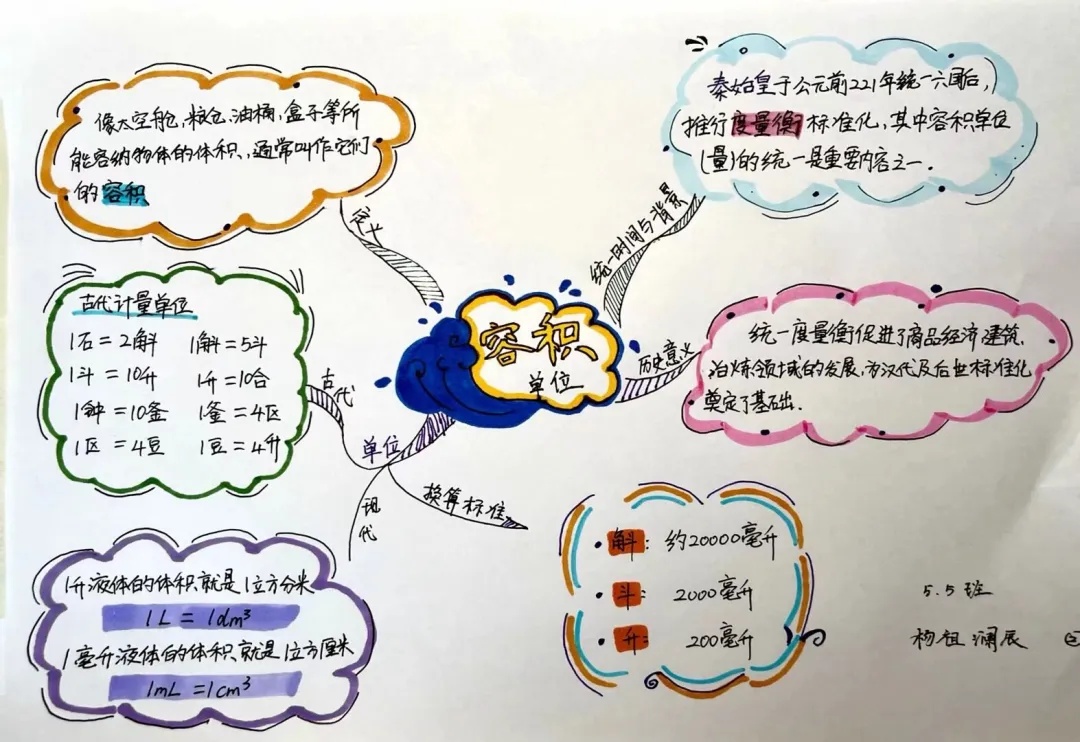 像太空舱，粮仓，油桶，盒子等所
能容纳物体的体积，通常叫作它们
的容积
定义
秦始皇于公元前221年统一六国后，
推行度量衡标准化，其中容积单位
(量)的统一是重要内容之一.
统一时间与背景
容积
单位
历史意义
统一度量衡促进了商品经济建筑.
冶炼领域的发展,为汉代及后业标准化
奠定了基础.
古代计量单位
1石=2斛 1斛=5斗
1斗=10升 1升=10合
1钟=10釜 1釜=4区
1区=4豆 1豆=4升
古代
单位
现代
换算标准
1升液体的体积就是1立方分米
1L=1dm³
1毫升液体的体积就是1立方厘米
1mL=1cm³
·斛：约20000毫升
·斗：2000毫升
·升：200毫升
5.5班
杨祖澜辰